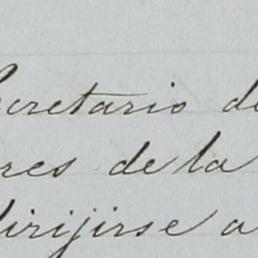 Secretario de
res de la
dirijirse a